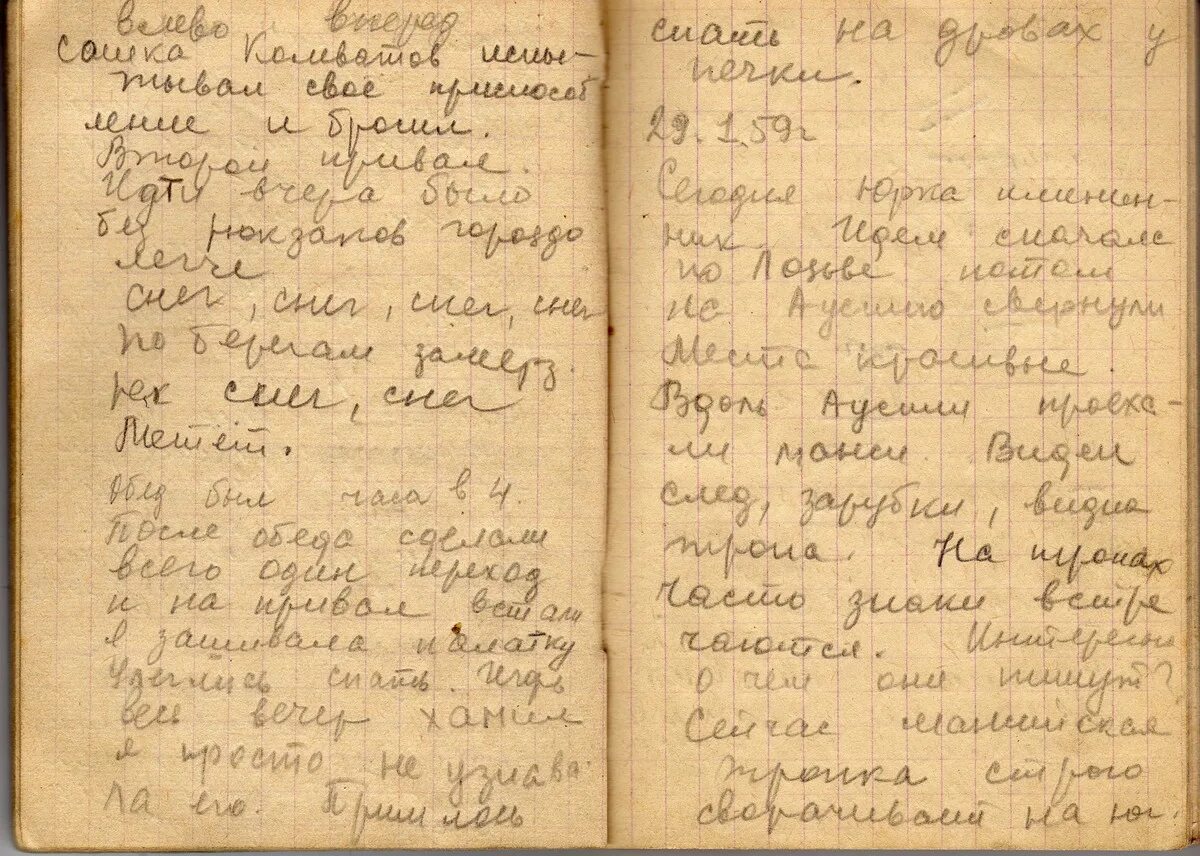 влево вперед
Сашка Колватов испы-
тывал свое приспособ
ление и бросил.
Второй привал.
Идти вчера было
без рюкзаков гораздо
легче
снег, снег, снег, снег
по берегам замерз.
рек снег, снег
Метет.
Обед был часа в 4.
После обеда сделали
всего один переход
и на привал встали
Я зашивала палатку
Улеглись спать. Игорь
весь вечер хамил
я просто не узнава-
ла его. Пришлось
спать на дровах у
печки.
29.1.59г
Сегодня Юрка именин-
ник. Идем сначала
по Лозьве потом
на Ауспию свернули
Места красивые.
Вдоль Ауспии проеха-
ли манси. Виден
след, зарубки, видна
тропа. На тропах
часто знаки встре
чаются. Интересно
о чем они пишут?
Сейчас мансийская
тропка строго
сворачивает на юг.